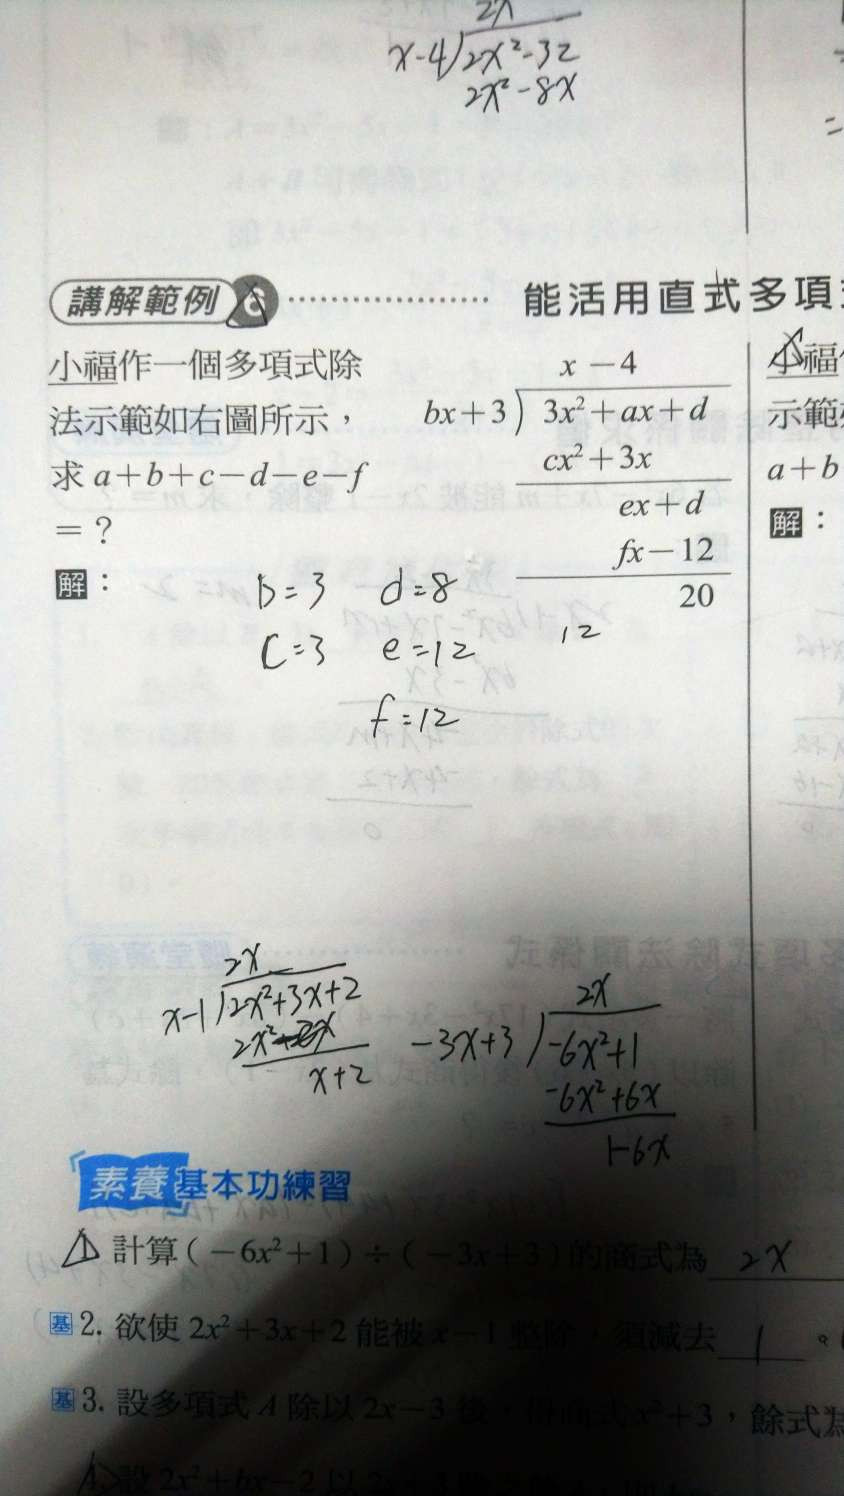 2x
x-4)2x²-32
2x²-8x
=
講解範例 6 能活用直式多項
小福作一個多項式除
法示範如右圖所示，
求 a+b+c-d-e-f
=？
解：
x-4
bx+3)3x²+ax+d
cx²+3x
ex+d
fx-12
20
12
b=3 d=8
c=3 e=12
f=12
小福
示範
a+b
解：
2x
x-1)2x²+3x+2
x+2
2x
-3x+3)-6x²+1
-6x²+6x
1-6x
素養基本功練習
1. 計算(-6x²+1)÷(-3x+3)的商式為 2x
基 2. 欲使 2x²+3x+2 能被 x-1 整除，須減去 1 。
基 3. 設多項式 A 除以 2x-3 後，得商式 x²+3，餘式為
4. 設 2x²+bx-2 以